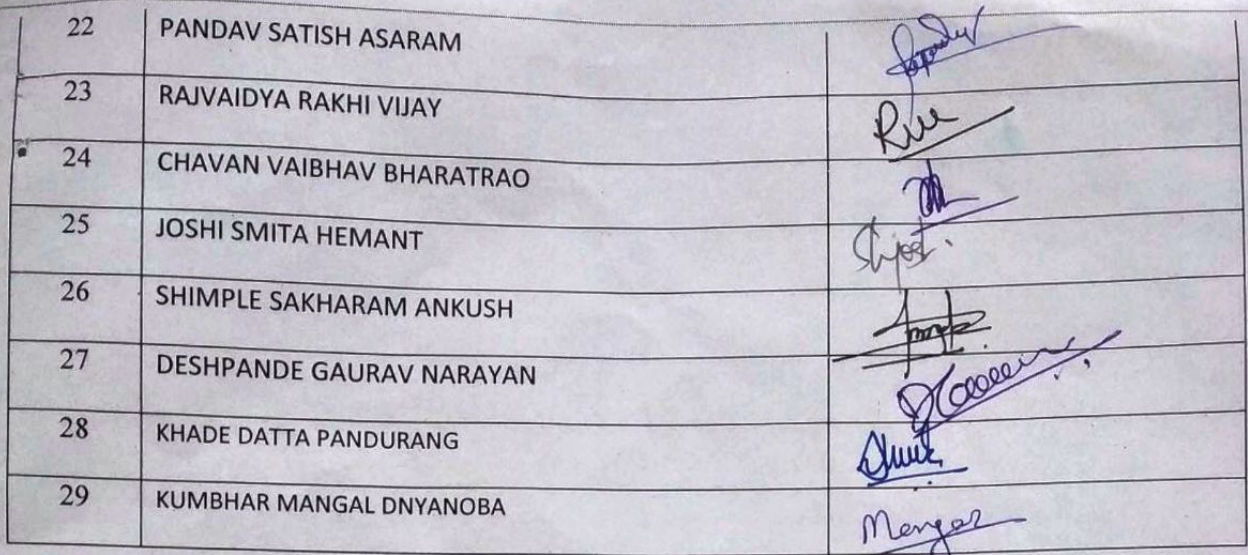 22 PANDAV SATISH ASARAM
23 RAJVAIDYA RAKHI VIJAY
24 CHAVAN VAIBHAV BHARATRAO
25 JOSHI SMITA HEMANT
26 SHIMPLE SAKHARAM ANKUSH
27 DESHPANDE GAURAV NARAYAN
28 KHADE DATTA PANDURANG
29 KUMBHAR MANGAL DNYANOBA